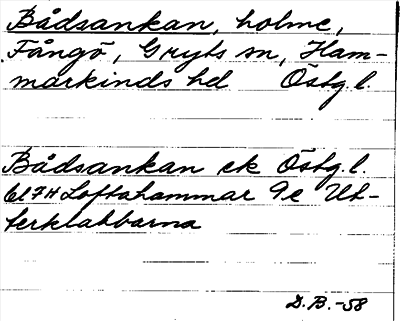 Bådsankan, holme,
Fångö, Gryts sn, Ham-
markinds hd Östg. l.
Bådsankan ek Östg. l.
Loftahammar 9e Ut-
terklabbarna
D.B.-58